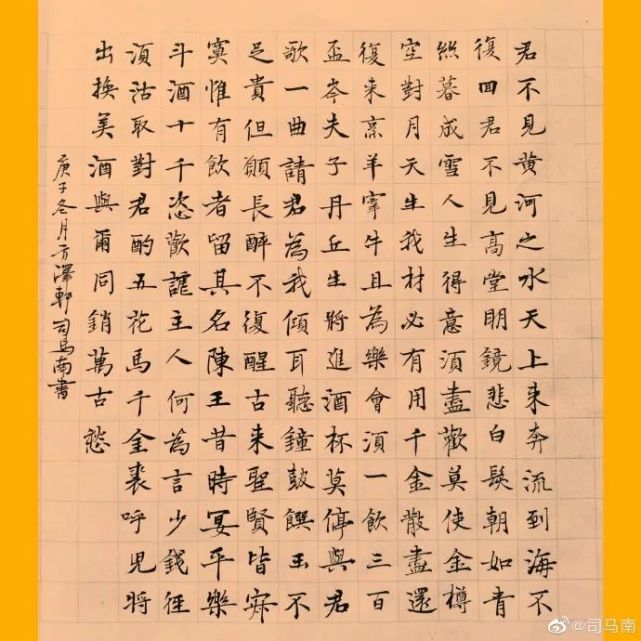 君不見黄河之水天上来奔流到海不
復回君不見高堂明鏡悲白髮朝如青
絲暮成雪人生得意須盡歡莫使金樽
空對月天生我材必有用千金散盡還
復来烹羊宰牛且為樂會須一飲三百
盃岑夫子丹丘生將進酒杯莫停與君
歌一曲請君為我傾耳聽鐘鼓饌玉不
足貴但願長醉不復醒古来聖賢皆寂
寞惟有飲者留其名陳王昔時宴平樂
斗酒十千恣歡謔主人何為言少錢徑
須沽取對君酌五花馬千金裘呼兒將
出換美酒與爾同銷萬古愁
庚子冬月方澤軒司马南書
@司马南